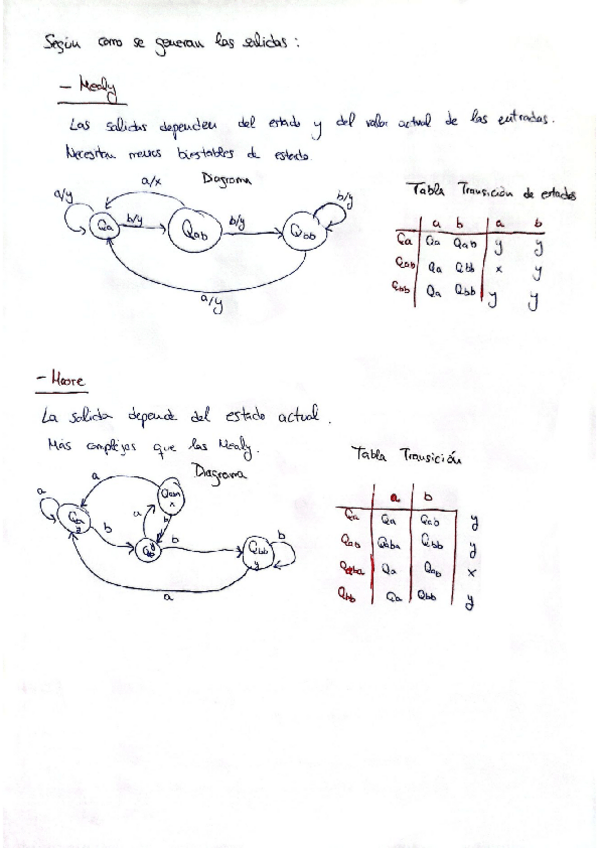 Según como se generan las salidas:
- Mealy
Las salidas dependen del estado y del valor actual de las entradas.
Necesitan menos biestables de estado.
Diagrama
a/y
a/x
b/y
b/y
b/y
Qa
Qab
Qbb
a/y
Tabla Transición de estados
a b a b
Qa Qa Qab y y
Qab Qa Qbb x y
Qbb Qa Qbb y y
- Moore
La salida depende del estado actual.
Más complejos que las Mealy.
Diagrama
a
a
x
Qa
y
b
a
b
b
Qbb
y
b
a
Tabla Transición
a b
Qa Qa Qab y
Qab Qaba Qbb y
Qaba Qa Qab x
Qbb Qa Qbb y